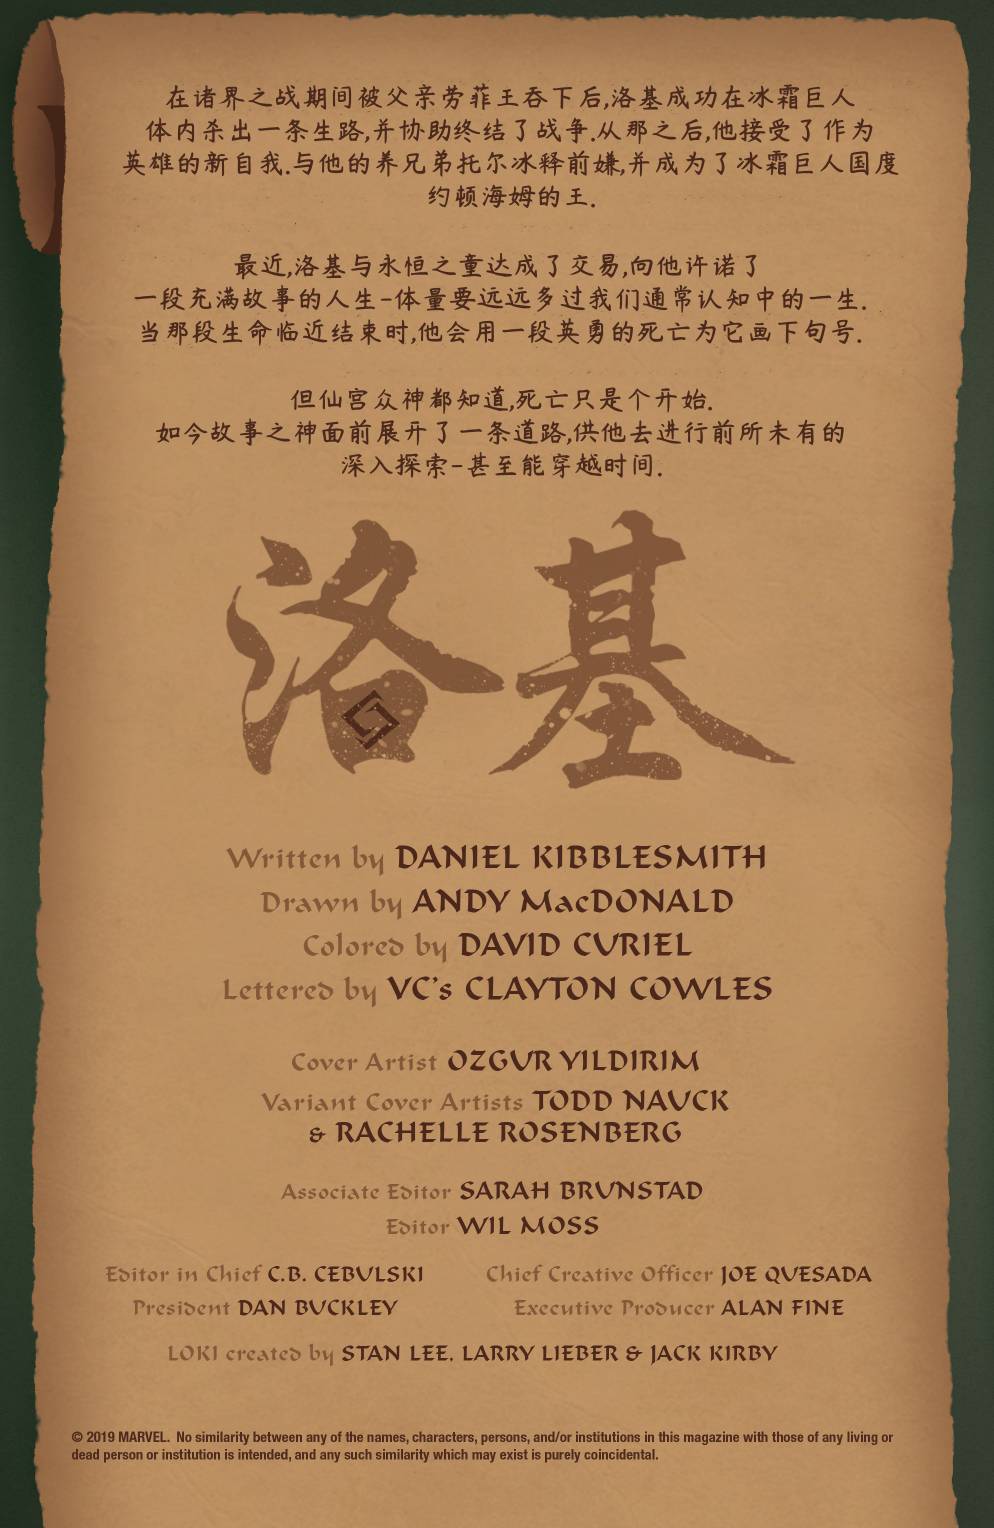 在诸界之战期间被父亲劳菲王吞下后,洛基成功在冰霜巨人
体内杀出一条生路,并协助终结了战争.从那之后,他接受了作为
英雄的新自我.与他的养兄弟托尔冰释前嫌,并成为了冰霜巨人国度
约顿海姆的王.
最近,洛基与永恒之童达成了交易,向他许诺了
一段充满故事的人生-体量要远远多过我们通常认知中的一生.
当那段生命临近结束时,他会用一段英勇的死亡为它画下句号.
但仙宫众神都知道,死亡只是个开始.
如今故事之神面前展开了一条道路,供他去进行前所未有的
深入探索-甚至能穿越时间.
洛基
Written by DANIEL KIBBLESMITH
Drawn by ANDY MacDONALD
Colored by DAVID CURIEL
Lettered by VC's CLAYTON COWLES
Cover Artist OZGUR YILDIRIM
Variant Cover Artists TODD NAUCK
& RACHELLE ROSENBERG
Associate Editor SARAH BRUNSTAD
Editor WIL MOSS
Editor in Chief C.B. CEBULSKI Chief Creative Officer JOE QUESADA
President DAN BUCKLEY Executive Producer ALAN FINE
LOKI created by STAN LEE, LARRY LIEBER & JACK KIRBY
© 2019 MARVEL. No similarity between any of the names, characters, persons, and/or institutions in this magazine with those of any living or
dead person or institution is intended, and any such similarity which may exist is purely coincidental.